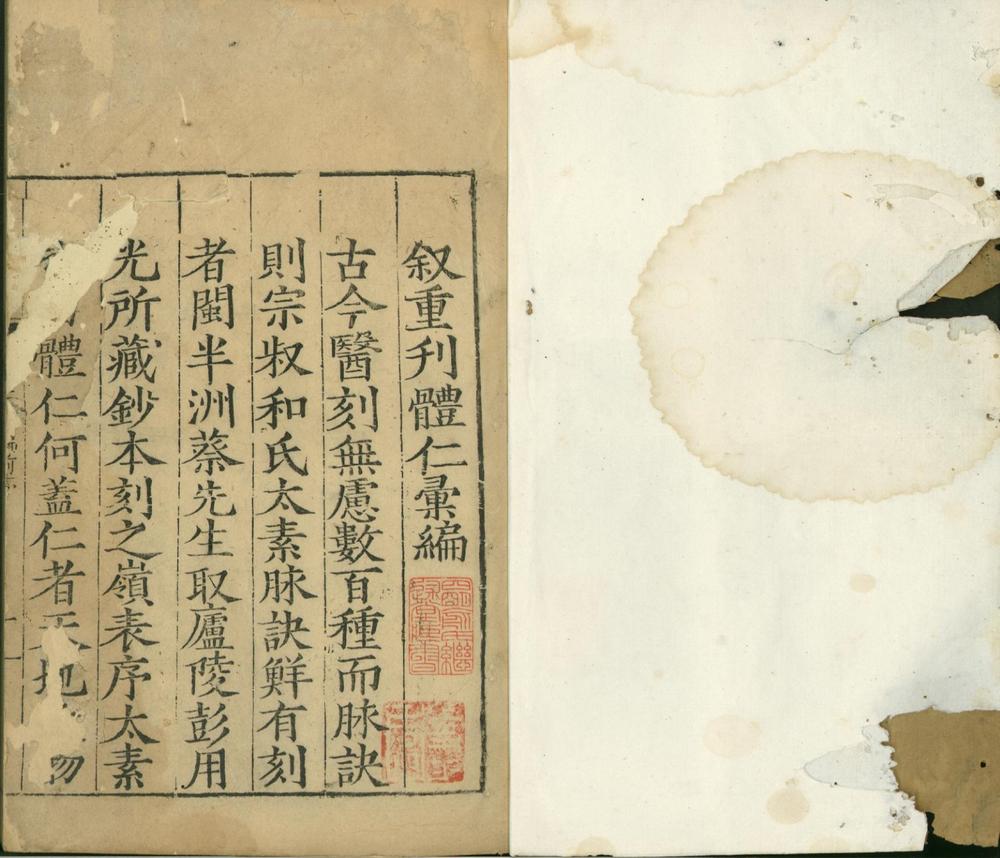 叙重刋體仁彙編
古今醫刻無慮數百種而脉訣
則宗叔和氏太素脉訣鮮有刻
者閩半洲蔡先生取廬陵彭用
光所藏鈔本刻之嶺表序太素
體仁何蓋仁者天地 物